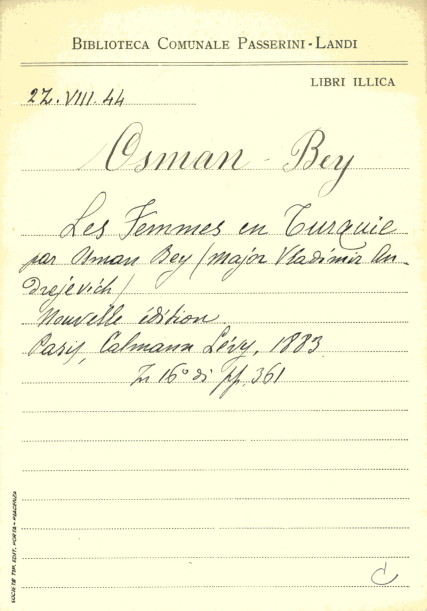 BIBLIOTECA COMUNALE PASSERINI-LANDI
LIBRI ILLICA
22.VIII.44
Osman-Bey
Les Femmes en Turquie
par Osman Bey (Major Vladimir An-
drejevich)
Nouvelle édition
Paris, Calmann Lévy, 1883
In 16° di pp. 361
SOCIETÀ TIP. EDIT. PORTA - PIACENZA
C